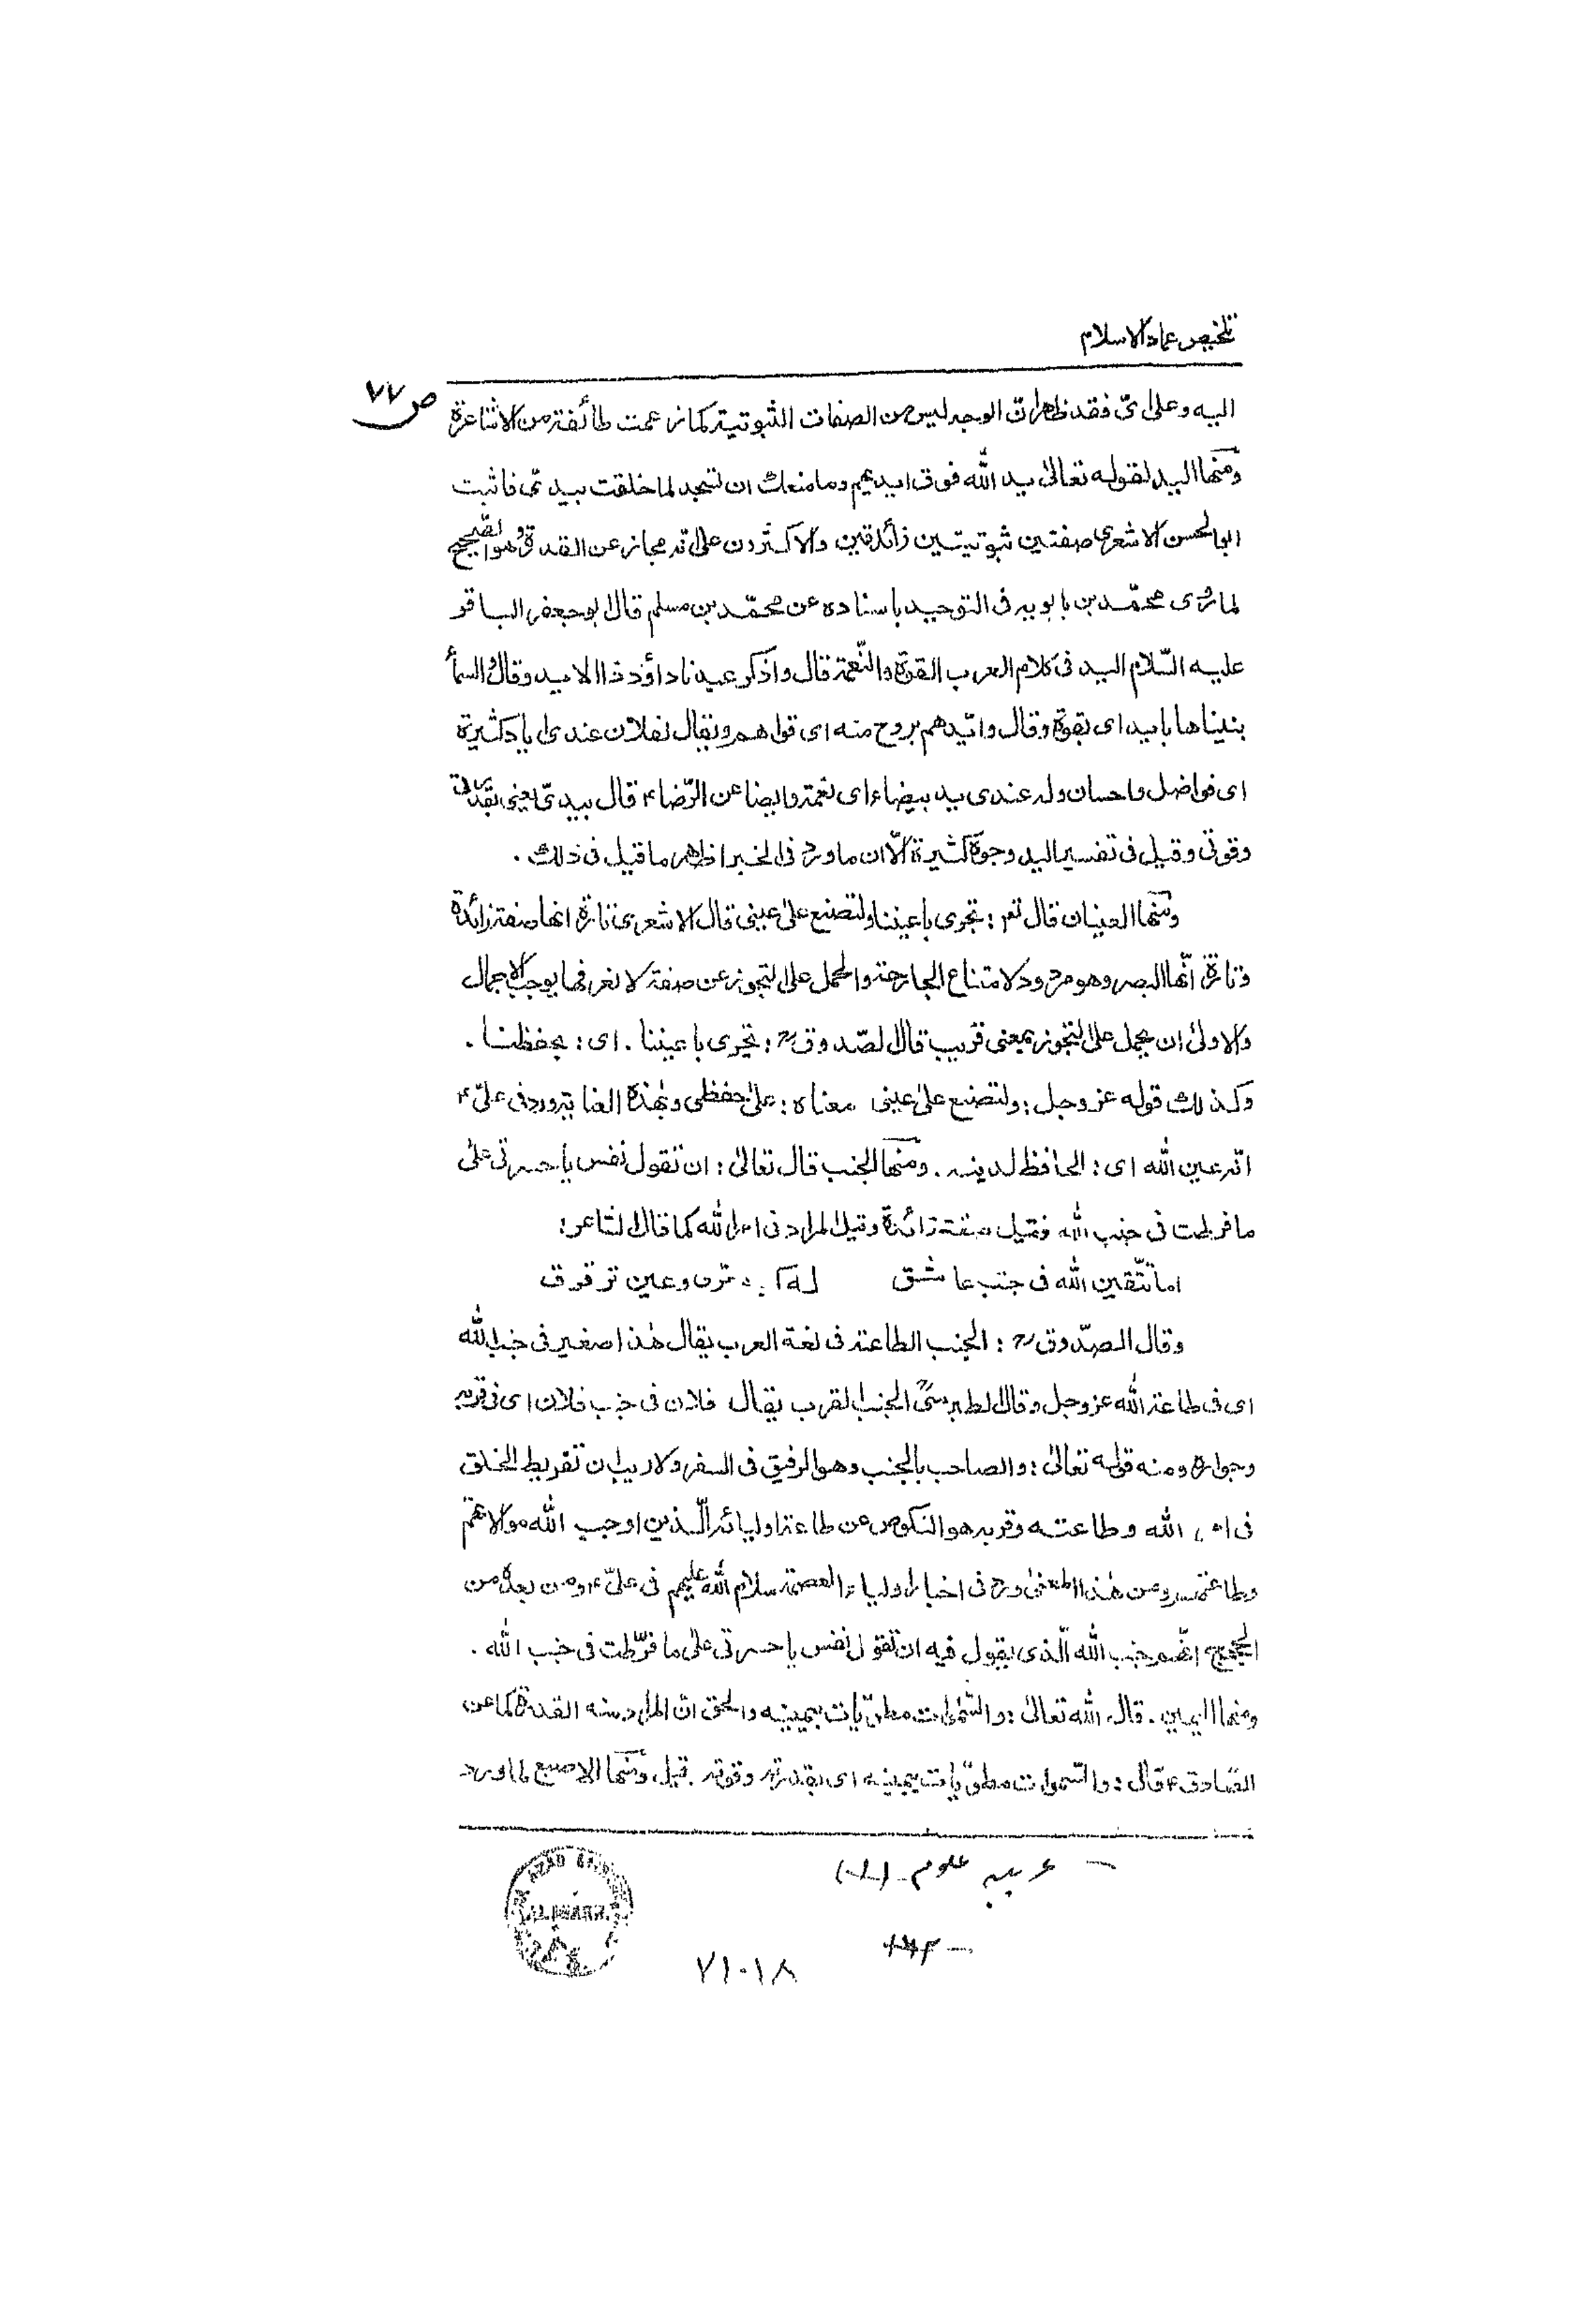 تلخیص عماد الاسلام
ص ٧٧
الیه وعلی ایّ فقد ظهر انّ الوجه لیس من الصفات الثبوتیة کما زعمت طائفة من الاشاعرة
ومنها الید لقوله تعالیٰ ید اللّٰه فوق ایدیهم وما منعک ان تسجد لما خلقت بیدیّ فاثبت
ابالحسن الاشعری صفتین ثبوتیتین زائدتین والاکثرون علی انه مجاز عن القدرة وهو الصّحیح
لما روی محمّد بن بابویه فی التوحید باسناده عن محمّد بن مسلم قال ابو جعفر الباقر
علیه السّلام الید فی کلام العرب القوة والنّعمة قال واذکر عبدنا داؤد ذا الاید وقال والسمأ
بنیناها باید ای بقوة وقال وایّدهم بروح منه ای قواهم ویقال لفلان عندی ایاد کثیرة
ای فواضل واحسان وله عندی ید بیضاء ای نعمة وایضا عن الرّضاء قال بیدیّ یعنی بقدرتی
وقوتی وقیل فی تفسیر الید وجوه کثیرة الّا ان ما ورد فی الخبر اظهر ما قیل فی ذلک .
ومنها العینان قال تعم : تجری باعیننا ولتصنع علیٰ عینی قال الاشعری تارة انها صفة زائدة
وتارة انّها البصر وهو مردود لامتناع الجارحة والحمل علی التجوز عن صفة لا نعرفها یوجب الاجمال
والاولیٰ ان یحمل علی التجوز بمعنی قریب قال الصّدوق رح : تجری باعیننا . ای : بحفظنا .
وکذلک قوله عز وجل : ولتصنع علیٰ عینی معناه : علیٰ حفظی وبهذه العنایة ورد فی علیّ ع
انّه عین اللّٰه ای : الحافظ لدینه . ومنها الجنب قال تعالیٰ : ان تقول نفس یا حسرتی علیٰ
ما فرطت فی جنب اللّٰه فقیل صفة زائدة وقیل المراد فی امر اللّٰه کما قال الشاعر :
اما تتّقین اللّٰه فی جنب عاشق له کبد حرّی وعین ترقرق
وقال الصّدوق رح : الجنب الطاعة فی لغة العرب یقال هٰذا صغیر فی جنب اللّٰه
ای فی طاعة اللّٰه عز وجل وقال الطبرسیّ الجنب القرب یقال فلان فی جنب فلان ای فی قربه
وجواره ومنه قوله تعالیٰ : والصاحب بالجنب وهو الرفیق فی السفر ولا ریب ان تفریط الخلق
فی امر اللّٰه وطاعته وقربه هو النکوص عن طاعة اولیائه الّذین اوجب اللّٰه موالاتهم
وطاعتهم ومن هٰذا المعنیٰ ورد فی اخبار اولیاء العصمة سلام اللّٰه علیهم فی علیّ ع ومن بعده من
الحجج انّهم جنب اللّٰه الّذی یقول فیه ان تقول نفس یا حسرتی علیٰ ما فرّطت فی جنب اللّٰه .
ومنها الیمین . قال اللّٰه تعالیٰ : والسّمٰوات مطویّات بیمینه والحق انّ المراد منه القدرة کما عن
الصّادق ع قال : والسّموات مطویّات بیمینه ای بقدرته وقوته . قیل ومنها الاصبع لما ورد
عربیه علوم
٧١٠١٨
AZAD
ALIGARH